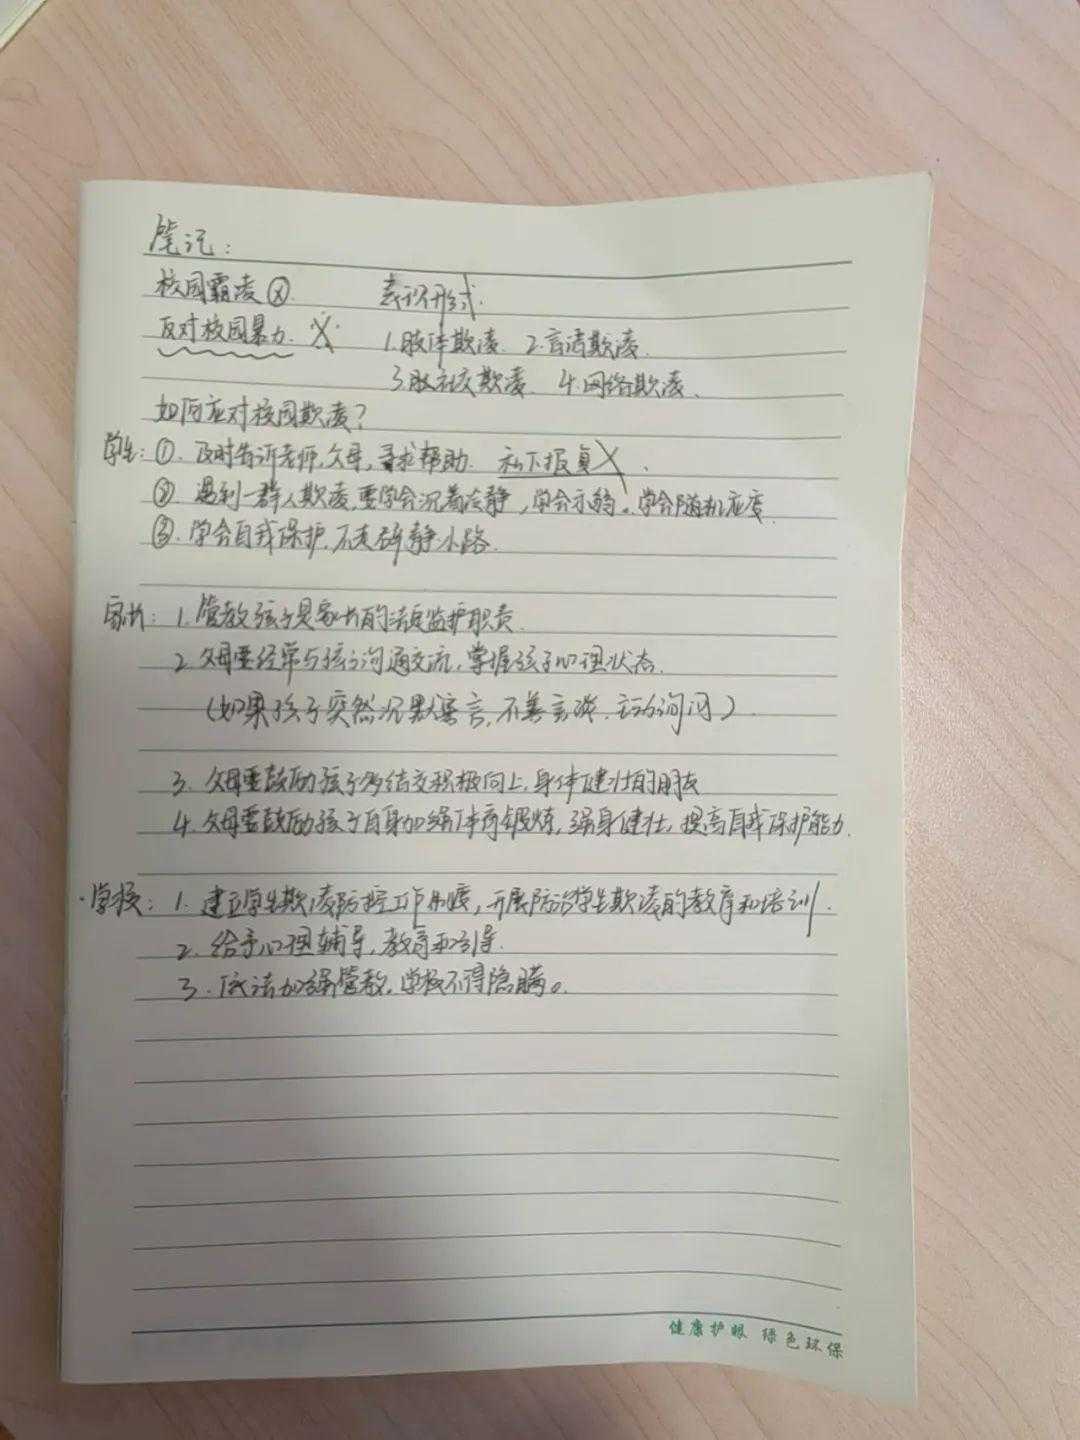 笔记:
校园霸凌 ⓧ 表现形式.
反对校园暴力. X 1.肢体欺凌. 2.言语欺凌.
3.社交欺凌. 4.网络欺凌.
如何应对校园欺凌?
学生: ①. 及时告诉老师,父母,寻求帮助. 私下报复X.
②. 遇到一群人欺凌,要学会沉着冷静,学会示弱。学会随机应变.
③. 学会自我保护,不走僻静小路.
家长: 1. 管教孩子是家长的法定监护职责.
2. 父母要经常与孩子沟通交流,掌握孩子心理状态.
(如果孩子突然沉默寡言,不善言谈,主动询问)
3. 父母要鼓励孩子多结交积极向上,身体健壮的朋友
4. 父母要鼓励孩子自身加强体育锻炼,强身健壮,提高自我保护能力.
·学校: 1. 建立学生欺凌防控工作制度,开展防治学生欺凌的教育和培训.
2. 给予心理辅导,教育和引导.
3. 依法加强管教,学校不得隐瞒。
健康护眼 绿色环保